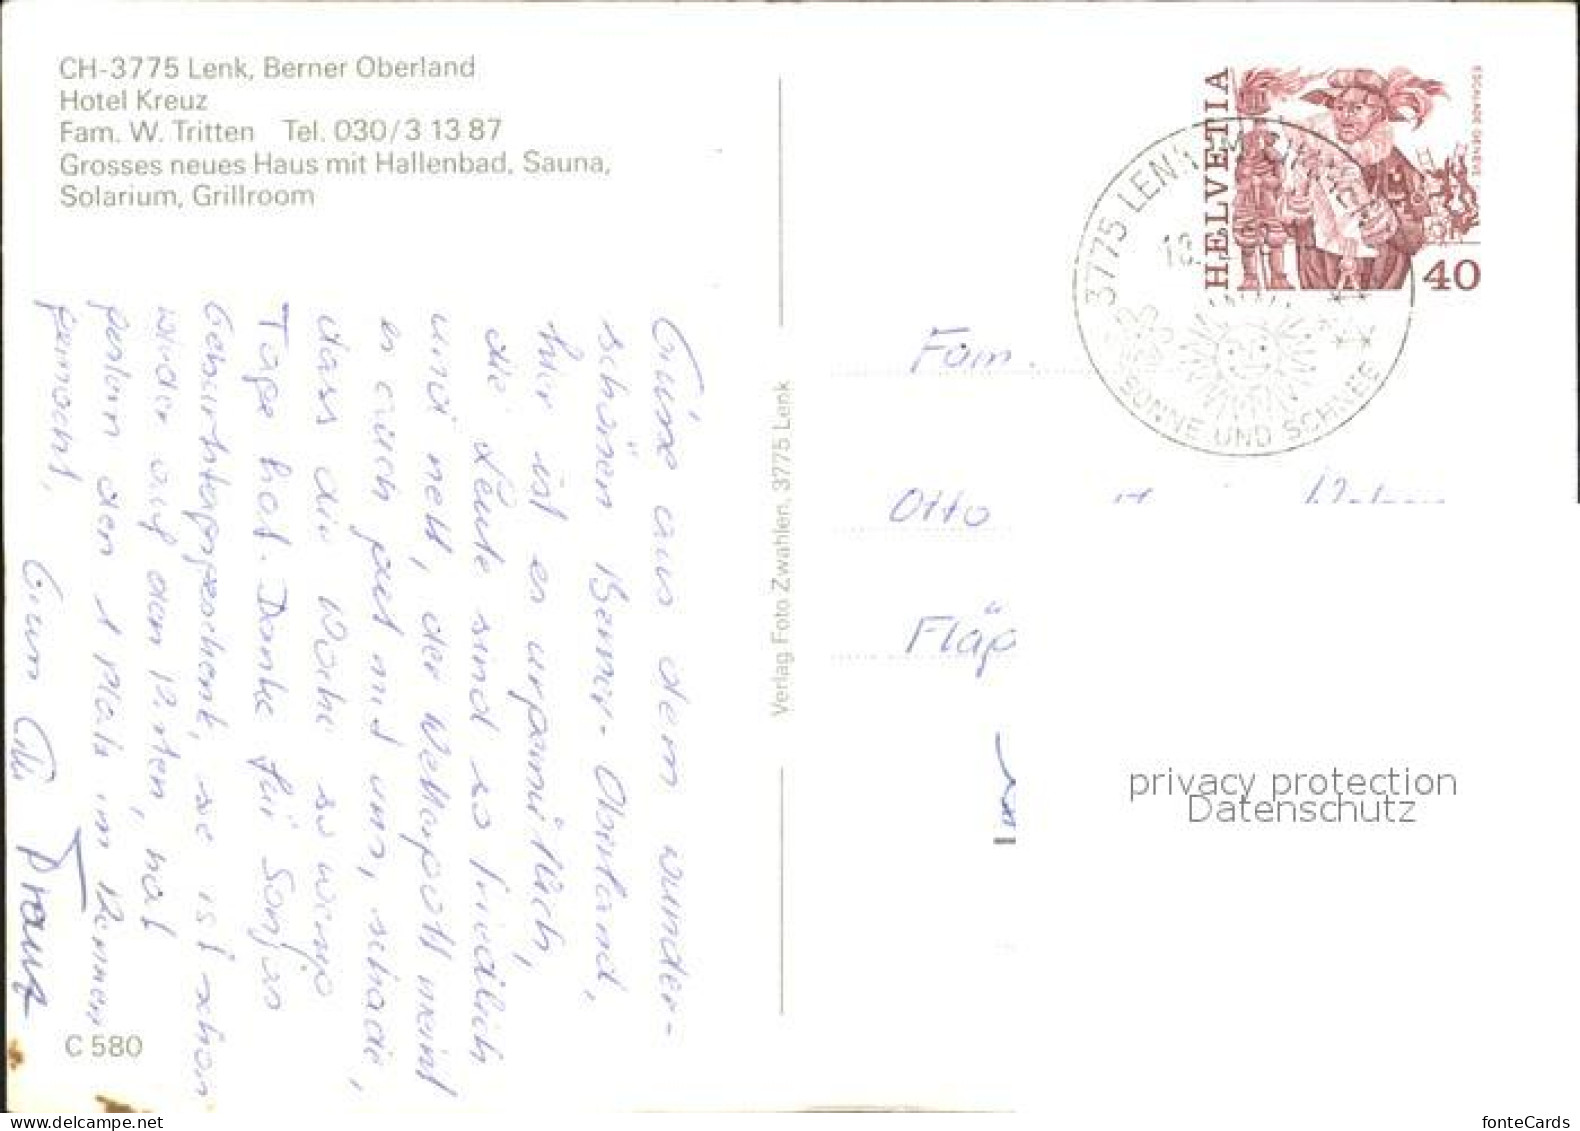 CH-3775 Lenk, Berner Oberland
Hotel Kreuz
Fam. W. Tritten Tel. 030/3 13 87
Grosses neues Haus mit Hallenbad, Sauna,
Solarium, Grillroom
Grüsse aus dem wunder-
schönen Berner-Oberland,
hier ist es urgemütlich,
die Leute sind so friedlich
und nett, der Wettergott meint
es auch gut mit uns, schade,
dass die Woche so wenig
Tage hat. Danke für Sonjas
Geburtstagsgeschenk, sie ist schon
wieder auf dem Pisten, hat
gestern den 1 Platz im Rennen
gemacht.
C 580
Verlag Foto Zwahlen, 3775 Lenk
HELVETIA
ESCALADE GENEVE
40
3775 LENK
SONNE UND SCHNEE
Fam.
Otto
Fläp
privacy protection
Datenschutz
fonteCards